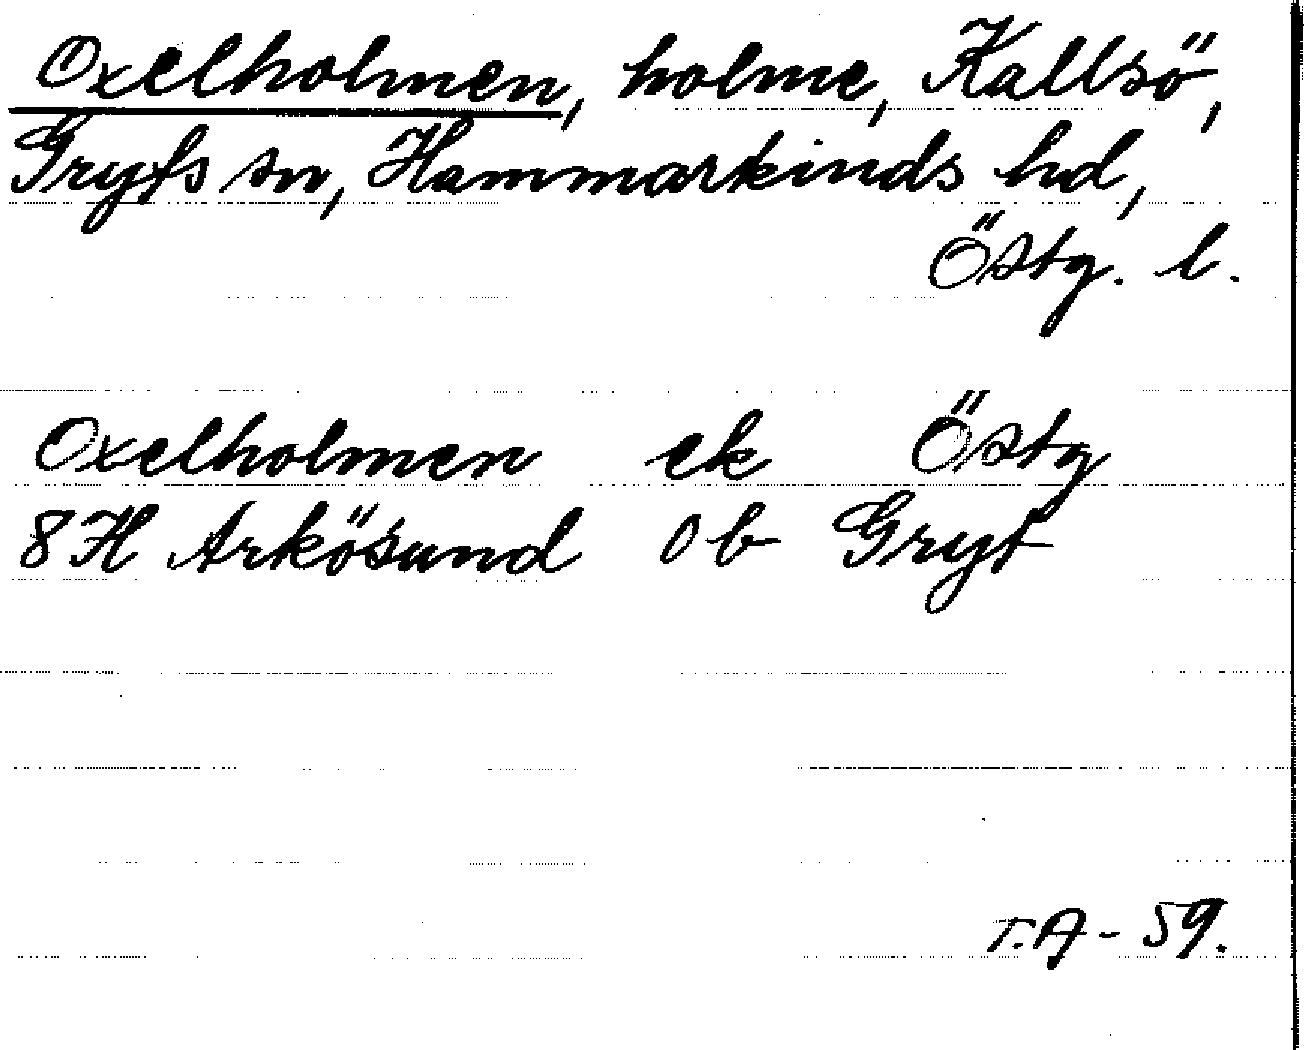 Oxelholmen, holme, Kallsö,
Gryts sn, Hammarkinds hd,
Östg. l.
Oxelholmen ek Östg
8H Arkösund 0b Gryt
T.A-59.